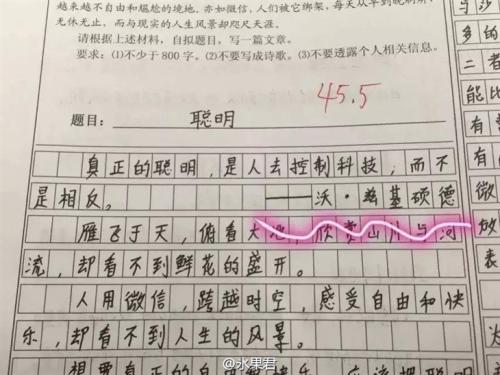 越来越不自由和尴尬的境地,亦如微信,人们被它绑架,每天从早到晚刷屏,
无休无止,而与现实的人生风景却咫尺天涯。
请根据上述材料,自拟题目,写一篇文章。
要求:(1)不少于800字。(2)不要写成诗歌。(3)不要透露个人相关信息。
45.5
题目: 聪明
真正的聪明,是人去控制科技,而不
是相反。 ——沃·兹基硕德
雁飞于天,俯看大地,欣赏山川与河
流,却看不到鲜花的盛开。
人用微信,跨越时空,感受自由和快
乐,却看不到人生的风景。
想要真正的自由
与沙
多的
二者
能比
有
有
微
放
表
@水果君